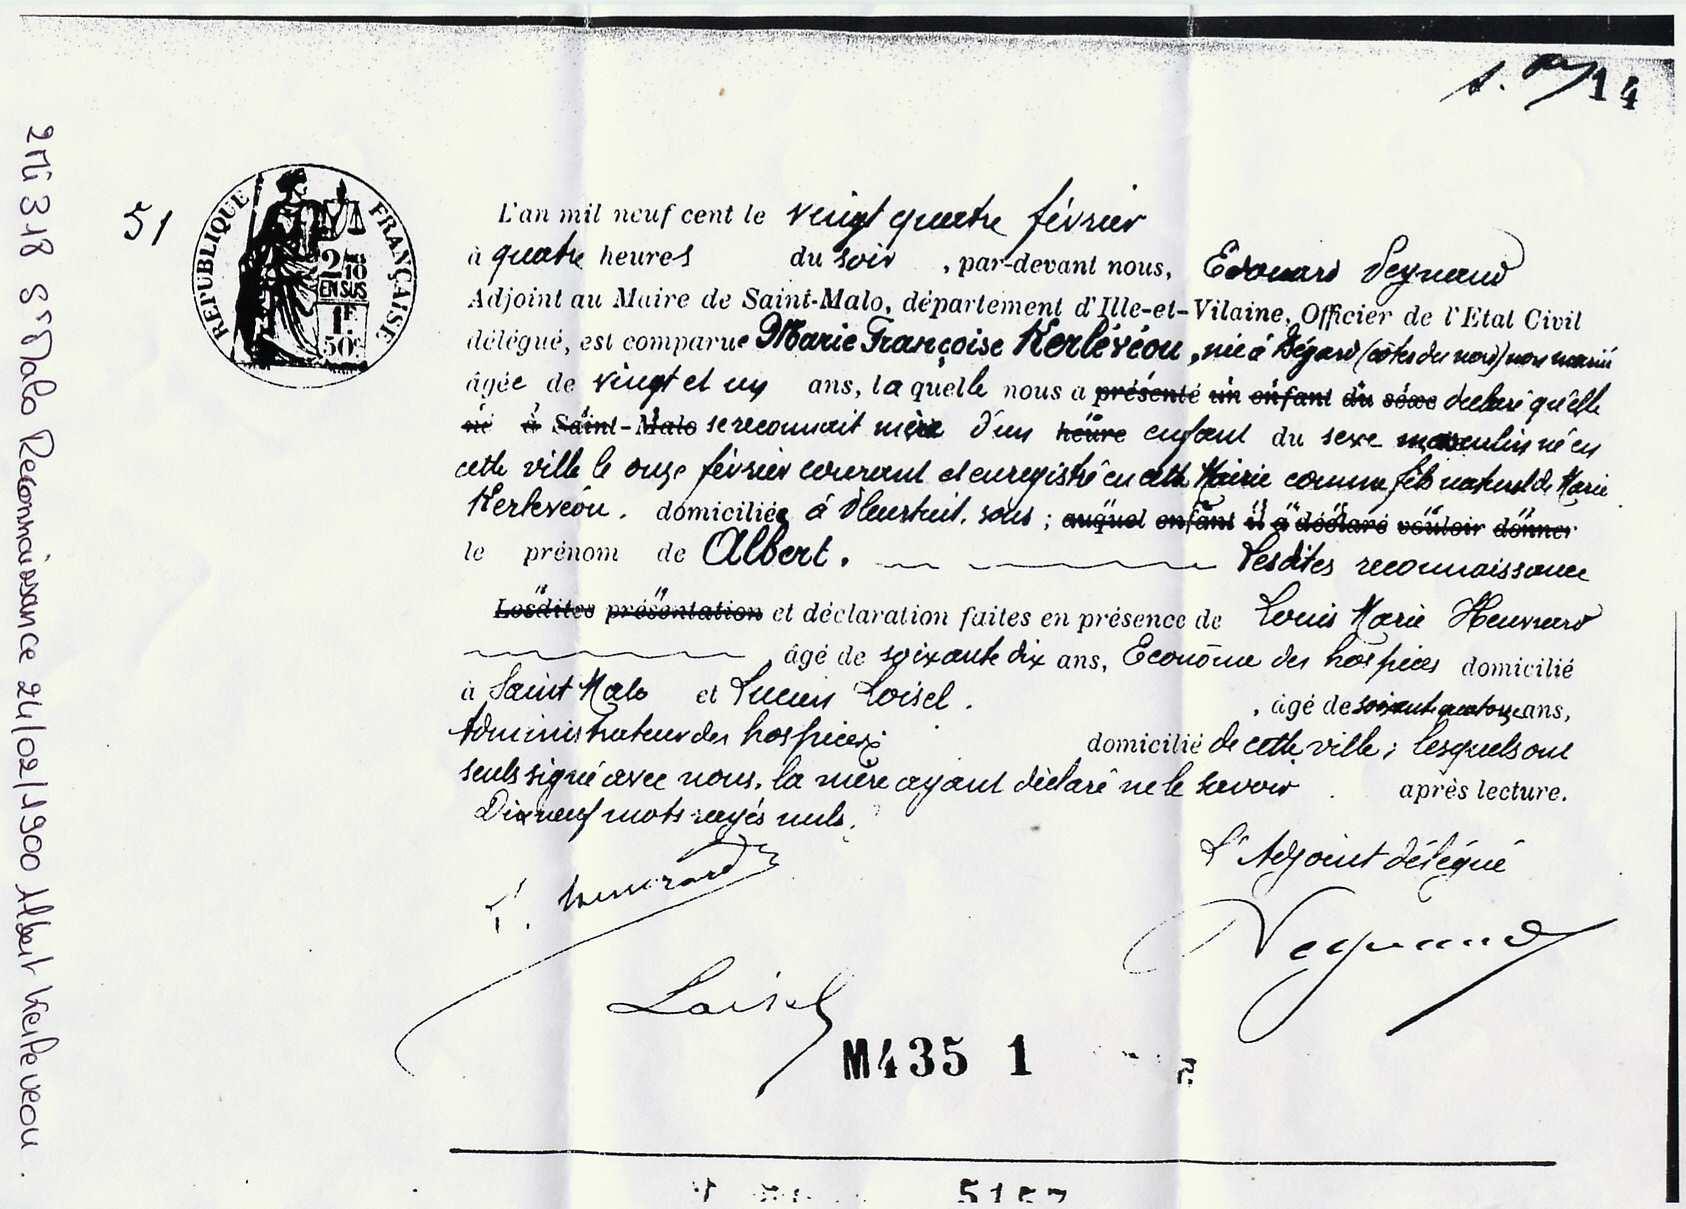 14
2 Mi 318 St Malo Reconnaissance 24/02/1900 Albert Kerleveou
51
REPUBLIQUE FRANÇAISE
2/10
EN SUS
1F
50c
L'an mil neuf cent le vingt quatre février
à quatre heures du soir, par-devant nous, Edouard Veynaud
Adjoint au Maire de Saint-Malo, département d'Ille-et-Vilaine, Officier de l'Etat Civil
délégué, est comparue Marie Françoise Kerlévéou, née à Bégard (côtes du nord) non mariée
âgée de vingt et un ans, laquelle nous a présenté un enfant du sexe déclaré qu'elle
né à Saint-Malo se reconnait mère d'un heure enfant du sexe masculin né en
cette ville le onze février courant et enregistré en cette Mairie comme fils naturel de Marie
Kerlevéou. domiciliée à Pleurtuit. sous ; auquel enfant il a déclaré vouloir donner
le prénom de Albert. Lesdites reconnaissance
Lesdites présentation et déclaration faites en présence de Louis Marie Heuvrard
âgé de soixante dix ans, Econôme des hospices domicilié
à Saint Malo et Lucien Loisel.
, âgé de soixante quatorze ans,
Administrateur des hospices domicilié de cette ville ; lesquels ont
seuls signé avec nous, la mère ayant déclaré ne le savoir après lecture.
Dix neuf mots rayés nuls.
L'Adjoint délégué
L. Heuvrard
Veynaud
Loisel
M435 1
5157